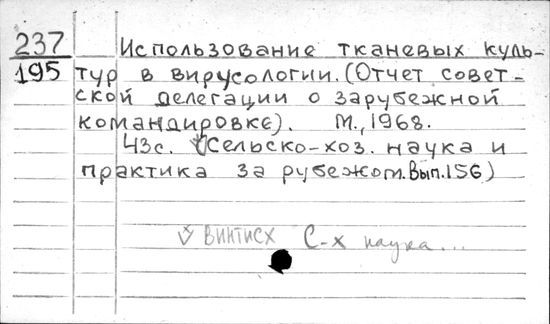 237 Использование тканевых куль-
195 тур в вирусологии. (Отчет совет-
ской делегации о зарубежной
командировке). М., 1968.
43с. (Сельско-хоз. наука и
практика за рубежом. Вып. 156)
√ ВИНТИСХ С-х наука...